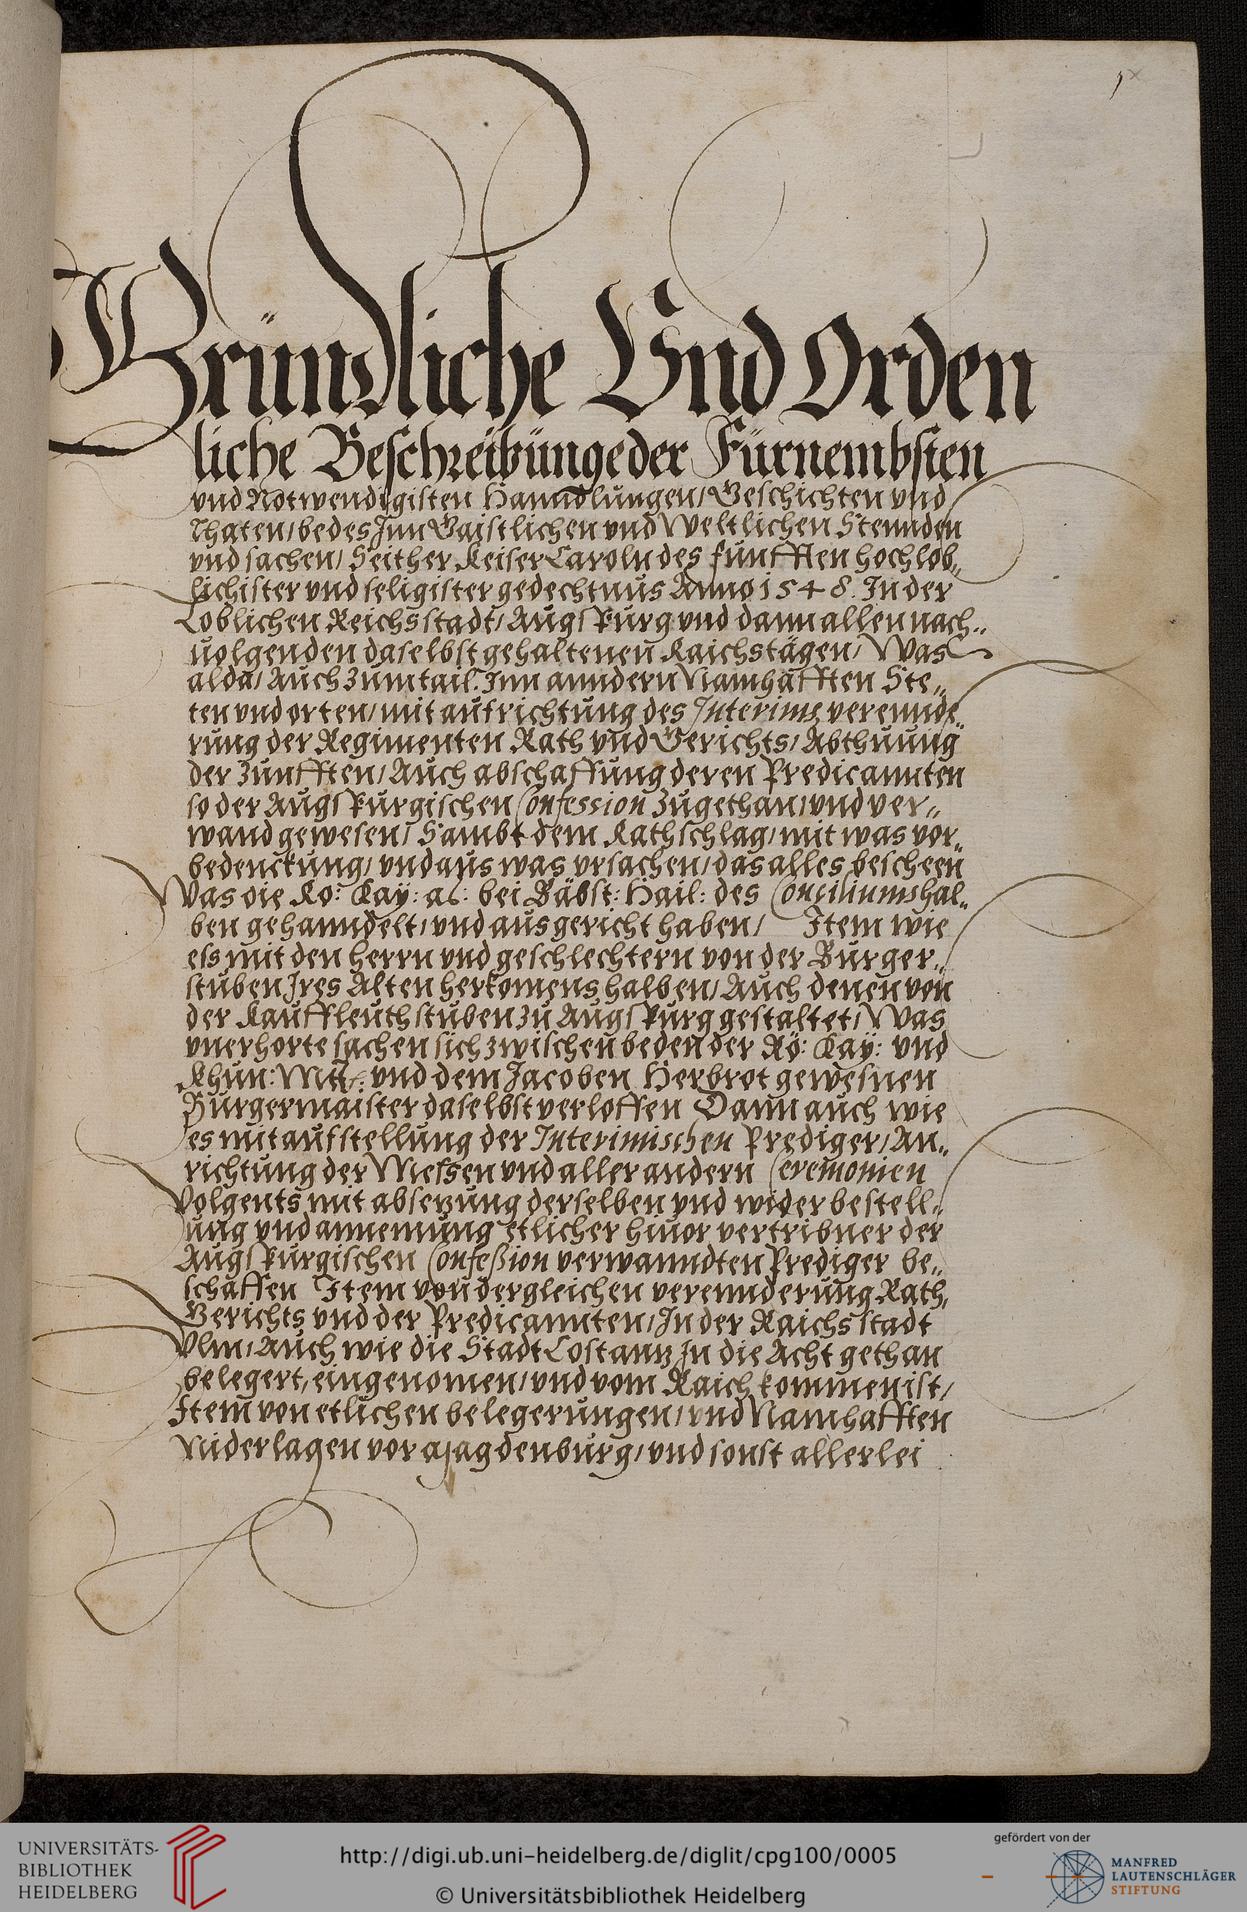 1
Gründliche Vnd Orden
liche Beschreibunge der Fürnembsten
vnd Notwendigisten Hanndlungen/ Geschichten vnd
Thaten/ bedes Jnn Gaistlichen vnd Weltlichen Stennden
vnd sachen/ Seither Keiser Caroln des funfften hochlob„
lichister vnd seligister gedechtnus Anno 1548. In der
Loblichen Reichsstadt/ Augspurg vnd dann allen nach„
uolgenden daselbst gehaltenen Raichstägen/ Was
alda/ Auch zum tail. Jnn anndern Namhafften Ste„
ten vnd orten/ mit aufrichtung des Interims verennde„
rung der Regimenten Rath vnd Gerichts/ Abthuung
der Zunfften/ Auch abschaffung deren Predicannten
so der Augspurgischen Confession zugethan/ vnd ver„
wand gewesen/ Sambt dem Rathschlag/ mit was vor„
bedenckung/ vnd aus was vrsachen/ das alles bescheen
Was die Rö: Kay: ac: bei Bäbst: Hail: des Conciliums hal„
ben gehanndelt/ vnd ausgericht haben/ Item wie
ess mit den herrn vnd geschlechtern von der Burger„
stuben Jres Alten herkomens halben/ Auch denen von
der Kauffleuthstuben zu Augspurg gestaltet/ Was
vnerhorte sachen sich zwischen beden der Rö: Kay: vnd
Khun: Mtt: vnd dem Jacoben Herbrot gewesnen
Burgermaister daselbst verloffen Dann auch wie
es mit aufstellung der Interimischen Prediger/ An„
richtung der Messen vnd aller andern Ceremonien
Volgents mit absezung derselben vnd wider bestell„
ung vnd annemung etlicher hiuor vertribner der
Augspurgischen Confeßion verwanndten Prediger be„
schaffen Item von dergleichen verennderung Rath,
Gerichts vnd der Predicannten/ In der Raichsstadt
Vlm/ Auch wie die Stadt Costanz Jn die Acht gethan
belegert, eingenomen/ vnd vom Raich kommen ist/
Item von etlichen belegerungen/ vnd Namhafften
Niderlagen vor Magdenburg/ vnd sonst allerlei
UNIVERSITÄTS-
BIBLIOTHEK
HEIDELBERG
http://digi.ub.uni-heidelberg.de/diglit/cpg100/0005
© Universitätsbibliothek Heidelberg
gefördert von der
MANFRED
LAUTENSCHLÄGER
STIFTUNG